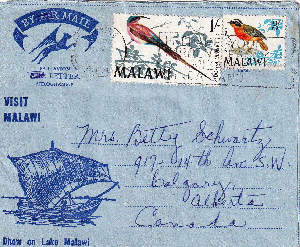 BY AIR MAIL
AIR LETTER
AEROGRAMME
1/-
MALAWI
MALAWI
VISIT
MALAWI
Mrs Betty Schwartz
917-14th Ave. S.W.
Calgary,
Alberta
Canada
Dhow on Lake Malawi